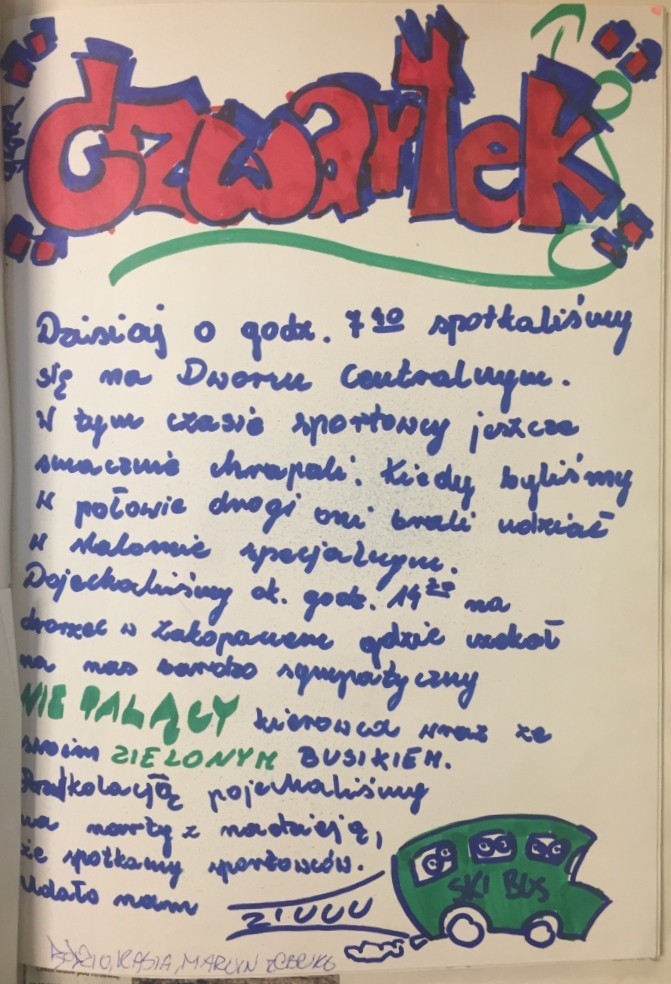 czwartek
Dzisiaj o godz. 7 10 spotkaliśmy
się na Dworcu Centralnym.
W tym czasie sportowcy jeszcze
smacznie chrapali. Kiedy byliśmy
w połowie drogi oni brali udział
w slalomie specjalnym.
Dojechaliśmy ok. godz. 14 20 na
dworzec w Zakopanem gdzie czekał
na nas bardzo sympatyczny
NIE PALĄCY kierowca wraz ze
swoim ZIELONYM BUSIKIEM.
Przed kolacją pojechaliśmy
na narty z nadzieją,
że spotkamy sportowców.
Udało nam
ZIUUU
SKI BUS
KASIA, MARCYN